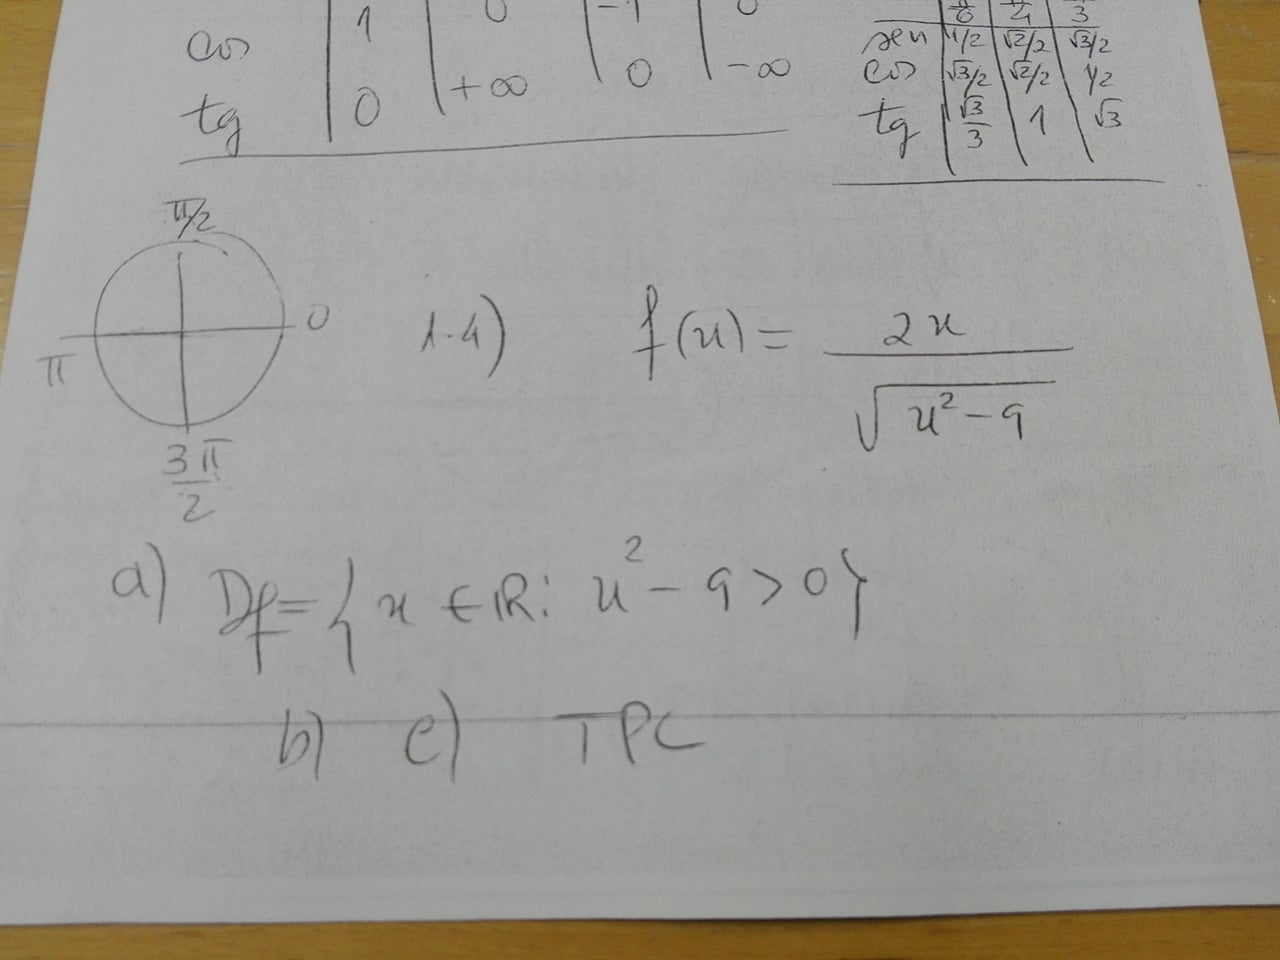 cos 1 0 -1 0
tg 0 +∞ 0 -∞
π/6 π/4 π/3
sen 1/2 √2/2 √3/2
cos √3/2 √2/2 1/2
tg √3/3 1 √3
π/2
0
π
3π/2
1.4) f(x) = 2x / √(x² - 9)
a) Df = { x ∈ IR: x² - 9 > 0 }
b) c) TPC